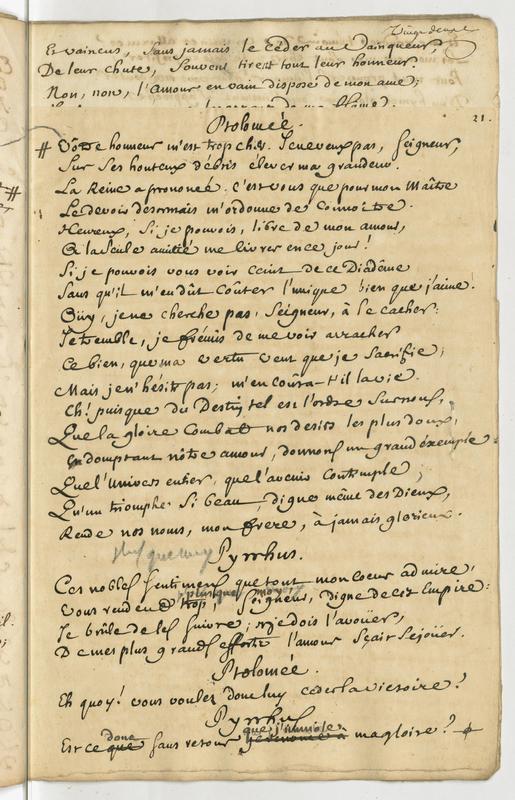 Vingt deux
Et vaincus, sans jamais le Céder au Vainqueur,
De leur chute, souvent tirent tout leur honneur.
Non, non, l'Amour en vain dispose de mon ame;
21.
Ptolomée.
# Vôtre honneur m'est trop cher. Je ne veux pas, Seigneur,
Sur ses honteux débris elever ma grandeur.
La Reine a prononcé. c'est vous que pour mon Maître
Le devoir desormais m'ordonne de Connoître.
Heureux, si je pouvois, libre de mon amour,
A la seule amitié me livrer en ce jour!
Si je pouvois vous voir Ceint de ce Diadême
Sans qu'il m'en dût Coûter l'unique bien que j'aime!
Oüy, je ne cherche pas, Seigneur, à le cacher:
Je tremble, je frémis de me voir arracher
Ce bien, que ma vertu veut que je Sacrifie;
Mais je n'hésite pas; m'en coûta-t'il la vie.
Eh! puisque du Destin tel est l'ordre sur nous,
Que la gloire Combat nos desirs les plus doux,
En domptant nôtre amour, donnons un grand éxemple
Que l'Univers entier, que l'avenir Contemple;
Qu'un triomphe si beau, digne même des Dieux,
Rende nos noms, mon frere, à jamais glorieux.
Pyrrhus.
Ces nobles sentimens que tout mon coeur admire,
plus que moy
Vous rendent trop, Seigneur, digne de cet Empire:
Je brûle de les suivre; et je dois l'avoüer,
De mes plus grands efforts l'amour sçait se joüer.
Ptolomée.
Eh quoy! vous voulez donc luy ceder la victoire?
Pyrrhus
donc que j'immole
Est ce que sans retour ma gloire?